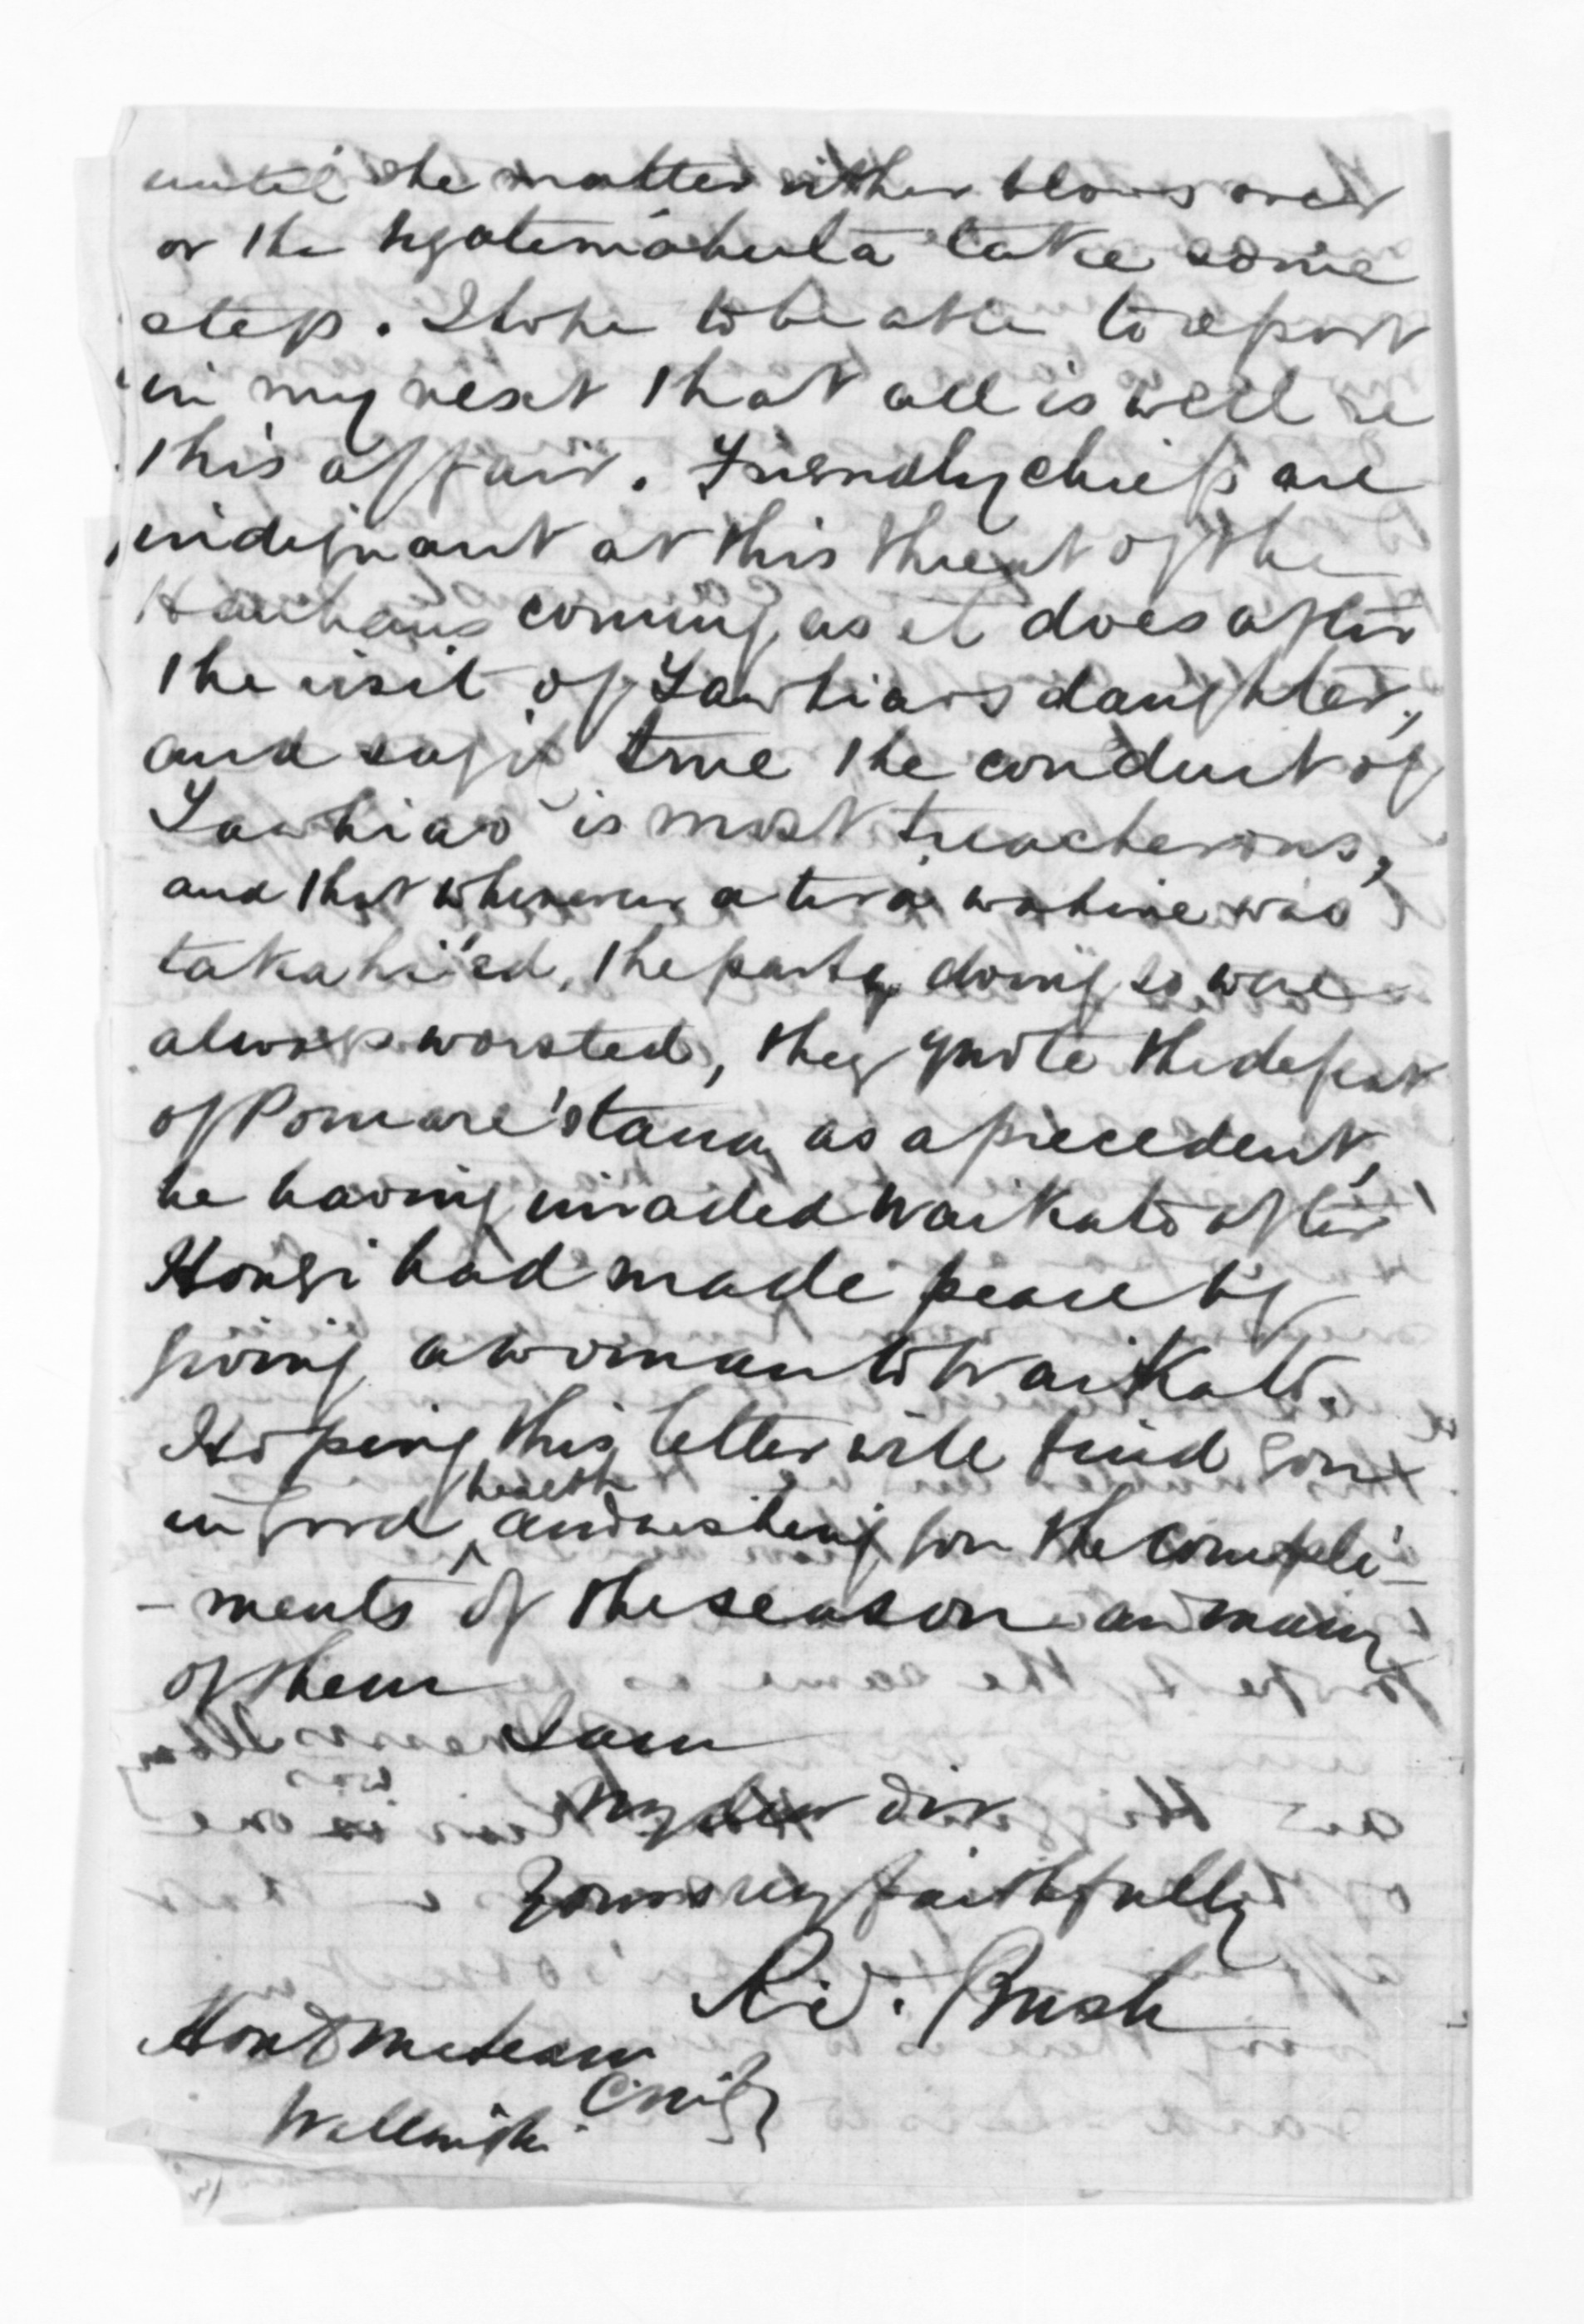 until the matter either blows over
or the Ngatimahuta take some
step. I hope to be able to report
in my next that all is well re
this affair. Friendly chiefs are
indignant at this threat of the
Hauhaus coming, as it does after
the visit of Tawhiao's daughter,
and say if true the conduct of
Tawhiao is most treacherous,
and that whenever a wahine was
takahi'ed, the party doing so were
always worsted, they quote the defeat
of Pomare's taua as a precedent,
he having invaded Waikato after
Hongi had made peace by
giving a woman to Waikato.
Hoping this letter will find you
in good health and wishing you the compli-
-ments of the season an many
of them
I am
My dear Sir
Yours very faithfully
R.S. Bush
Hon D McLean
Wellington